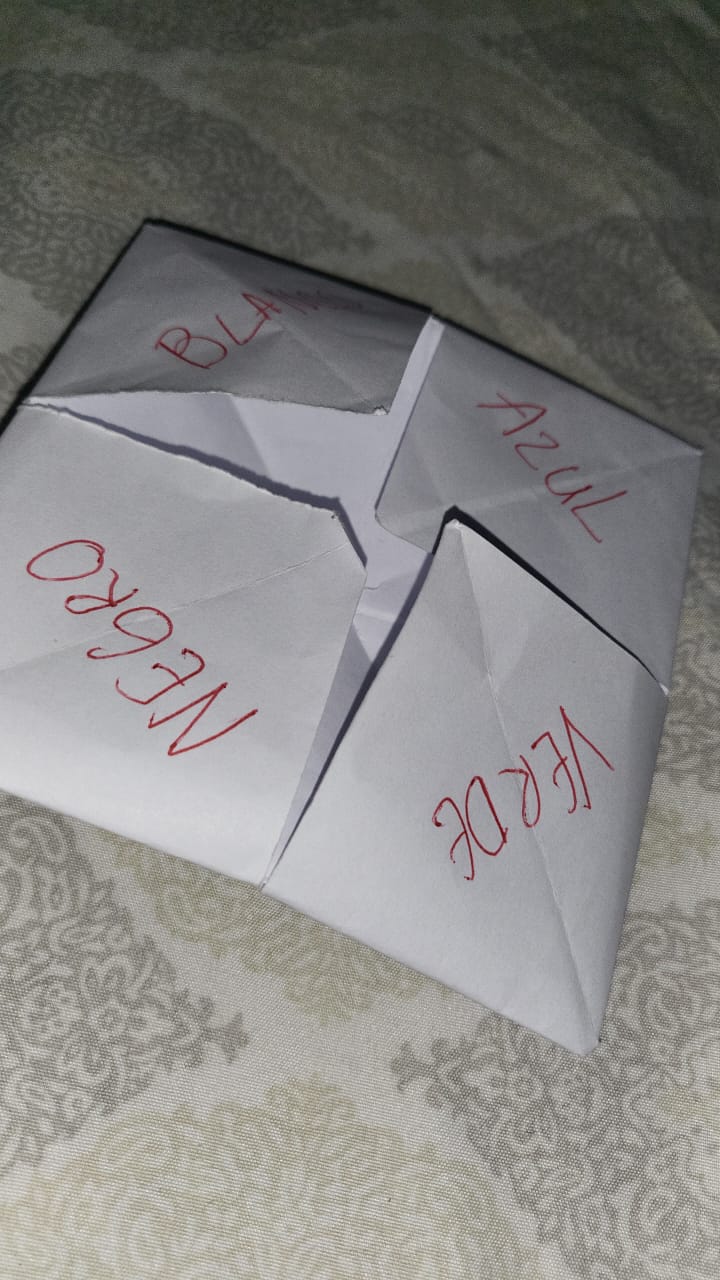 BLANCO
AZUL
NEGRO
VERDE